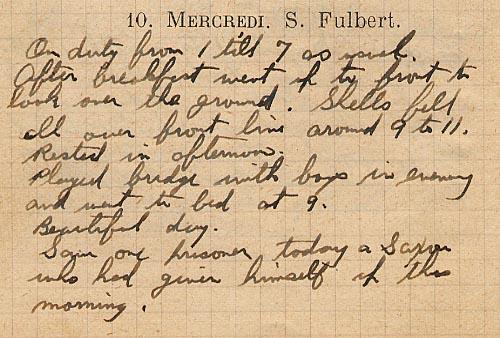 10. MERCREDI. S. Fulbert.
On duty from 1 till 7 as usual.
After breakfast went up to front to
look over the ground. Shells fell
all over front line around 9 to 11.
Rested in afternoon.
Played bridge with boys in evening
and went to bed at 9.
Beautiful day.
Saw one prisoner today a Saxon
who had given himself up this
morning.